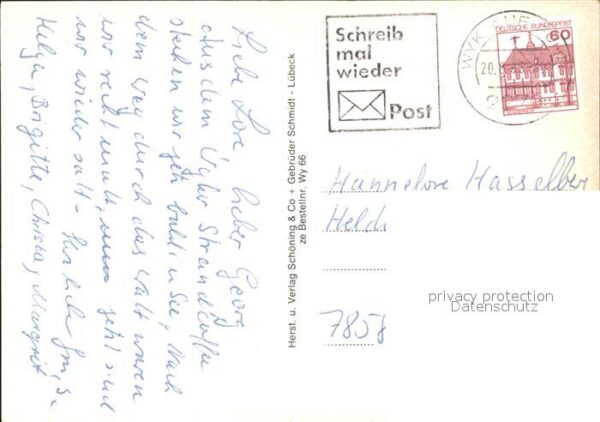 Liebe Lore, lieber Georg
aus dem Wyker Strandcaffee
stehen wir jetzt bald in See, Nach
dem Weg durch das Watt waren
wir recht matt, nun jetzt sind
wir wieder satt - Herzliche Grüße
Helga, Brigitte, Christa, Margret
Herst. u. Verlag Schöning & Co + Gebrüder Schmidt - Lübeck
ze Bestellnr. Wy 66
Schreib
mal
wieder
Post
WYK
20.
2
DEUTSCHE BUNDESPOST
60
Hannelore Hasselber
Held
7858
privacy protection
Datenschutz